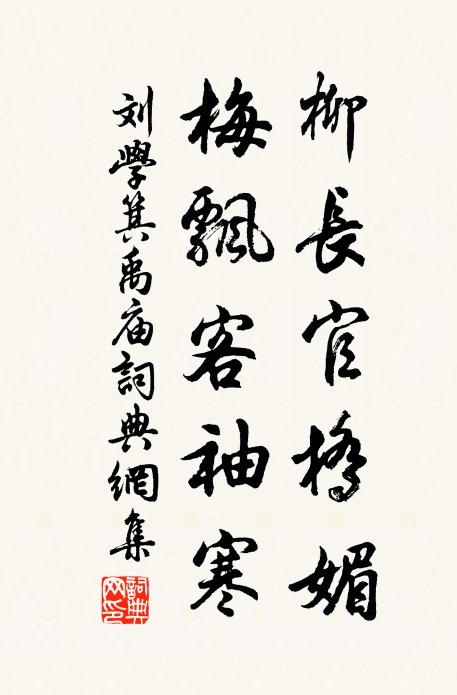 柳長官橋媚
梅飄客袖寒
刘學箕禹庙詞典網集
詞典網印